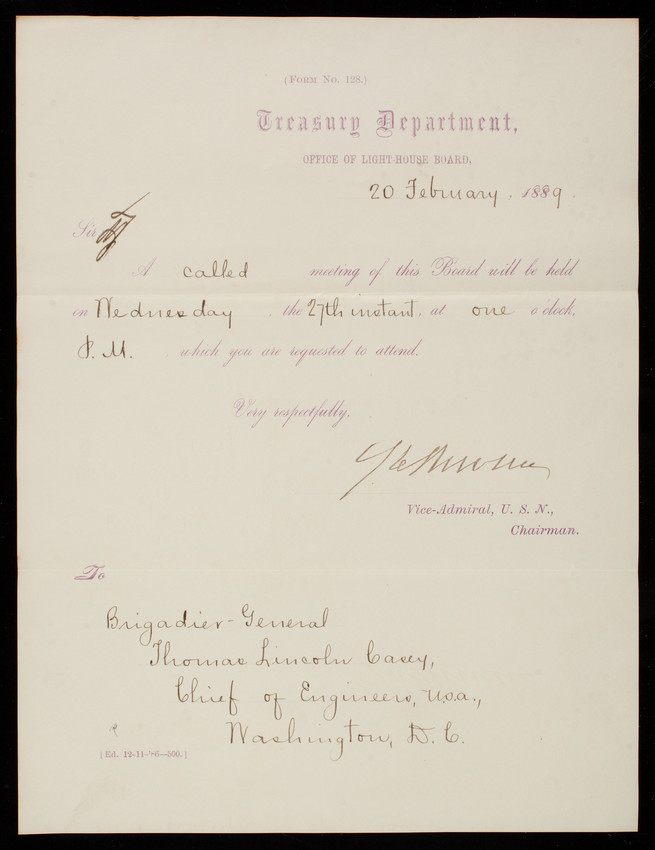 (Form No. 128.)
Treasury Department,
OFFICE OF LIGHT-HOUSE BOARD,
20 February, 1889.
Sir
A called meeting of this Board will be held
on Wednesday, the 27th instant. at one o'clock,
P. M. which you are requested to attend.
Very respectfully,
Vice-Admiral, U. S. N.,
Chairman.
To
Brigadier-General
Thomas Lincoln Casey,
Chief of Engineers, U.S.A.,
Washington, D. C.
(Ed. 12-11-'86—500.)